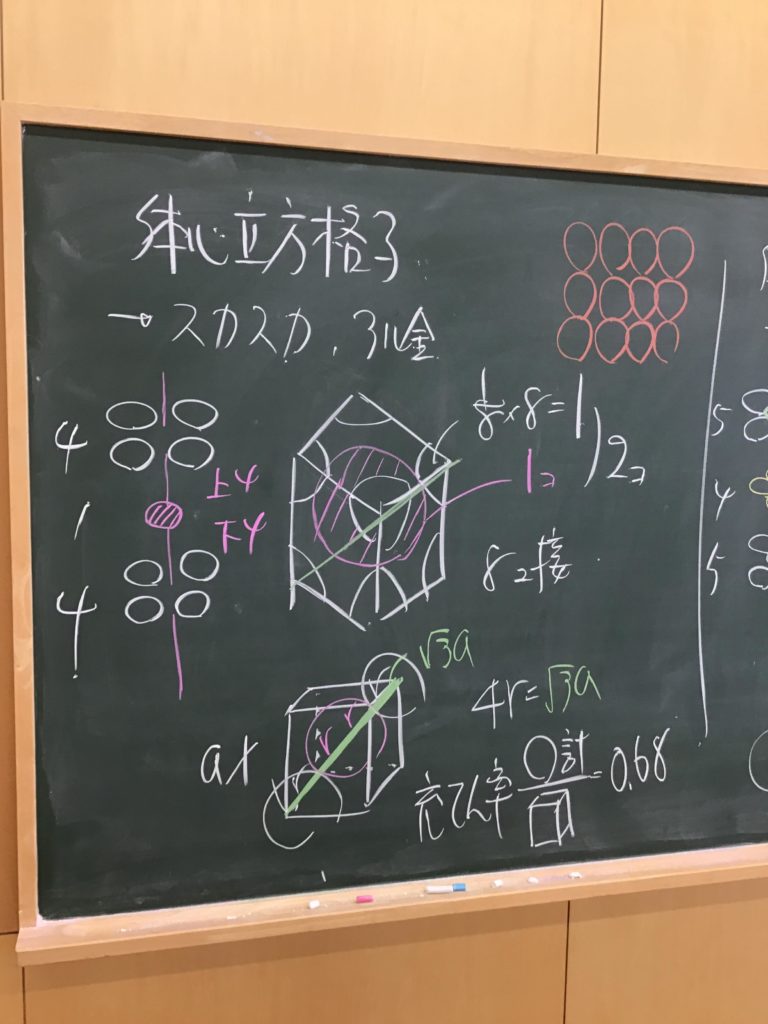 体心立方格子
→スカスカ、アルカリ金
4
1
4
上4
下4
1/8×8=1
1コ
2コ
8コ接
√3a
4r=√3a
a
r r
充てん率 ○計/□=0.68
5
4
5